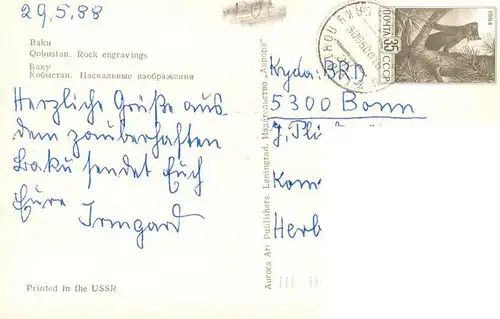 29.5.88
Baku
Qobustan. Rock engravings
Баку
Кобыстан. Наскальные изображения
Herzliche Grüße aus
dem zauberhaften
Baku sendet Euch
Eure Irmgard
Printed in the USSR
Aurora Art Publishers. Leningrad. Издательство „Аврора“
1984
ПОЧТА 35
СССР
Куда: BRD
5300 Bonn
Kom
Herb